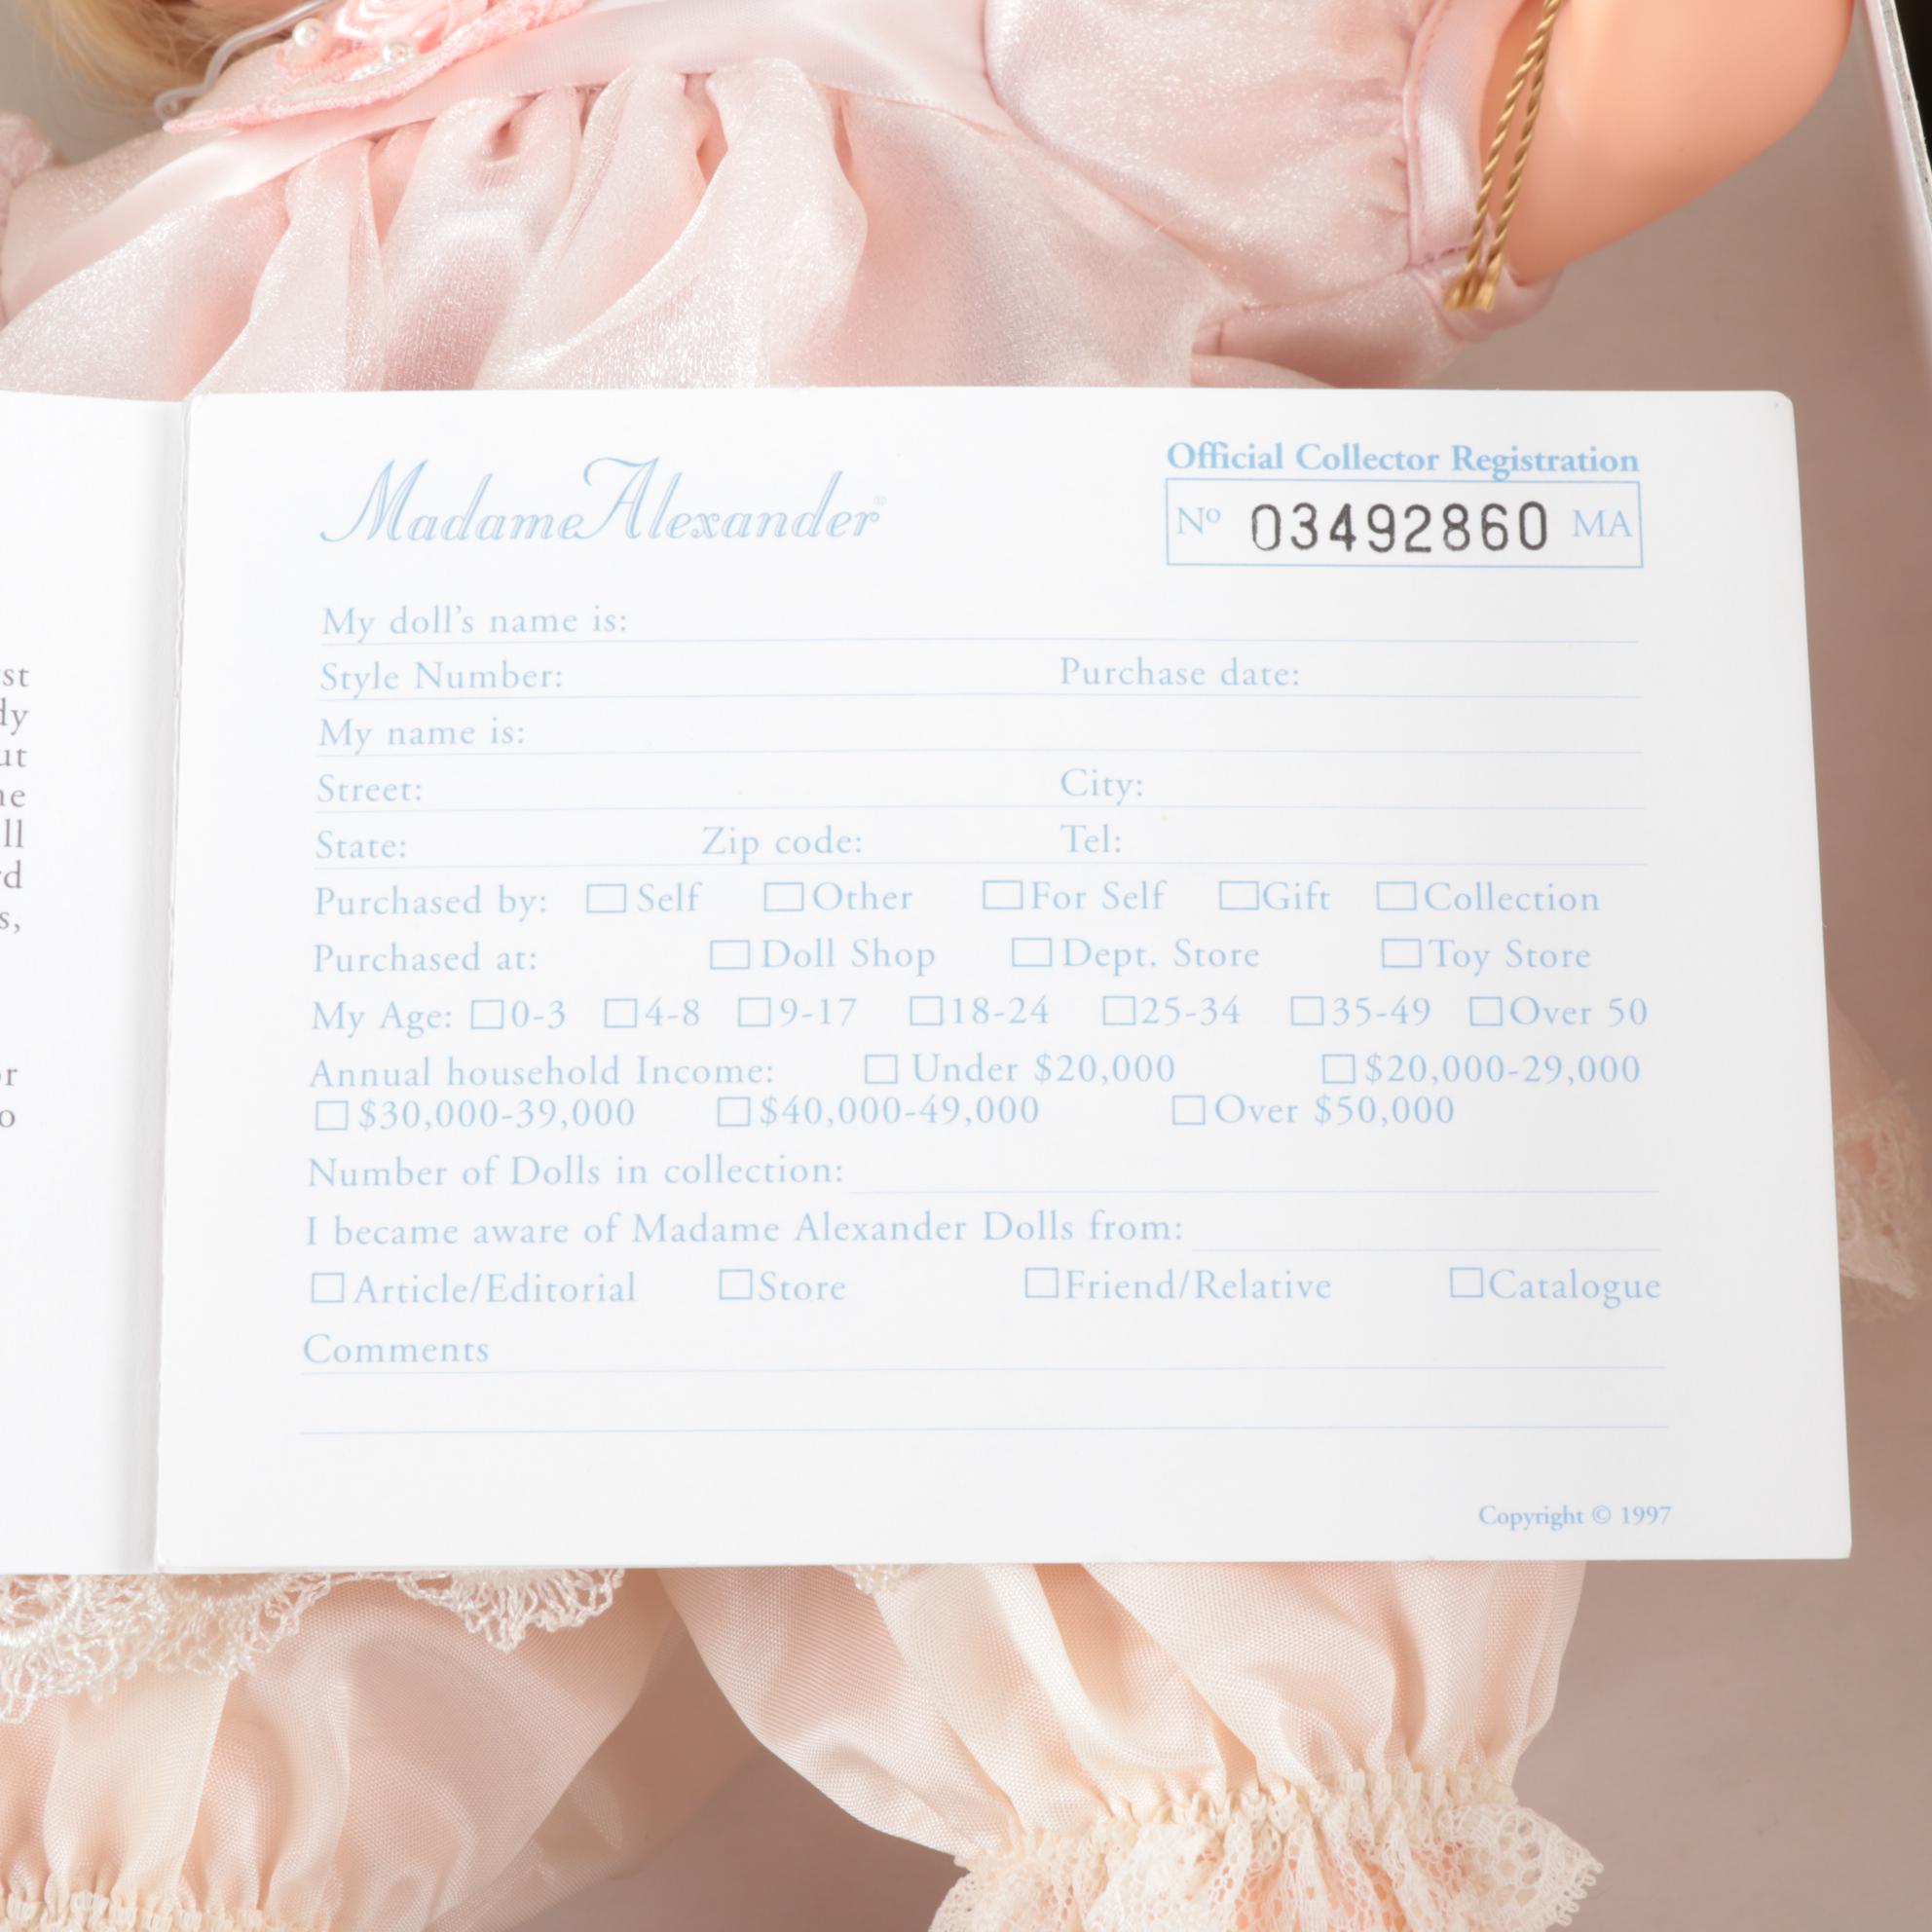 Madame Alexander®
Official Collector Registration
Nº 03492860 MA
My doll's name is:
Style Number: Purchase date:
My name is:
Street: City:
State: Zip code: Tel:
Purchased by: Self Other For Self Gift Collection
Purchased at: Doll Shop Dept. Store Toy Store
My Age: 0-3 4-8 9-17 18-24 25-34 35-49 Over 50
Annual household Income: Under $20,000 $20,000-29,000
$30,000-39,000 $40,000-49,000 Over $50,000
Number of Dolls in collection:
I became aware of Madame Alexander Dolls from:
Article/Editorial Store Friend/Relative Catalogue
Comments
Copyright © 1997